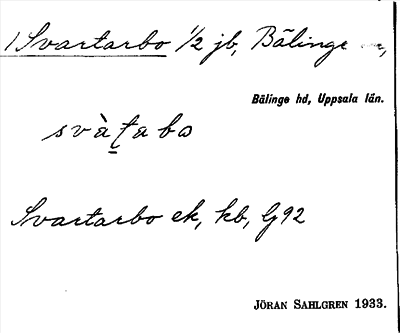 Svartarbo 1/2 jb, Bälinge
Bälinge hd, Uppsala län.
svàṭabo
Svartarbo ek, kb, G92
JÖRAN SAHLGREN 1933.